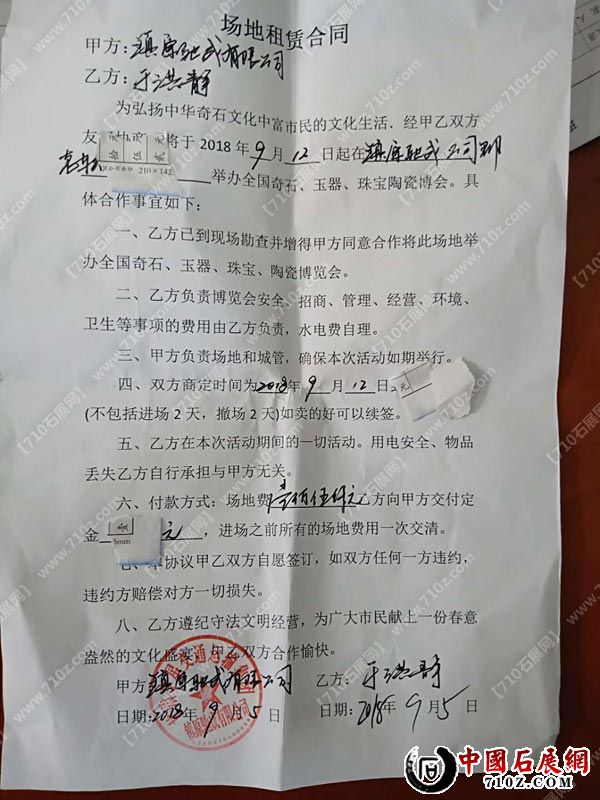 场地租赁合同
甲方:镇原驰武有限公司
乙方:于洪静
为弘扬中华奇石文化中富市民的文化生活.经甲乙双方
友 将于2018年9月12日起在镇原驰武公司
210×142 举办全国奇石、玉器、珠宝陶瓷博会。具
体合作事宜如下:
一、乙方已到现场勘查并增得甲方同意合作将此场地举
办全国奇石、玉器、珠宝、陶瓷博览会。
二、乙方负责博览会安全、招商、管理、经营、环境、
卫生等事项的费用由乙方负责,水电费自理。
三、甲方负责场地和城管,确保本次活动如期举行。
四、双方商定时间为2018年9月12日
(不包括进场2天,撤场2天)如卖的好可以续签。
五、乙方在本次活动期间的一切活动。用电安全、物品
丢失乙方自行承担与甲方无关。
六、付款方式:场地费 乙方向甲方交付定
金 壹 5mm 元,进场之前所有的场地费用一次交清。
本协议甲乙双方自愿签订,如双方任何一方违约,
违约方赔偿对方一切损失。
八、乙方遵纪守法文明经营,为广大市民献上一份春意
盎然的文化盛宴。甲乙双方合作愉快。
甲方:镇原驰武有限公司 乙方:于洪静
日期:2018年9月5日 日期:2018年9月5日
【710石展网】www.710z.com
中國石展網
710Z.COM